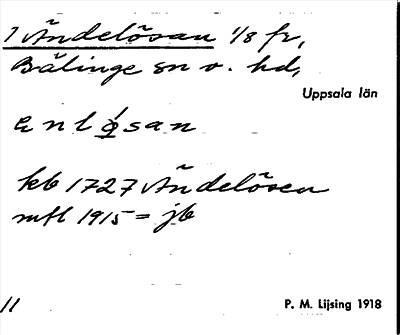 1 Ändelösan 1/8 fr,
Bälinge sn o. hd,
Uppsala län
enlǿsan
kb 1727 Ändelösen
mfl 1915 = jb
11
P. M. Lijsing 1918